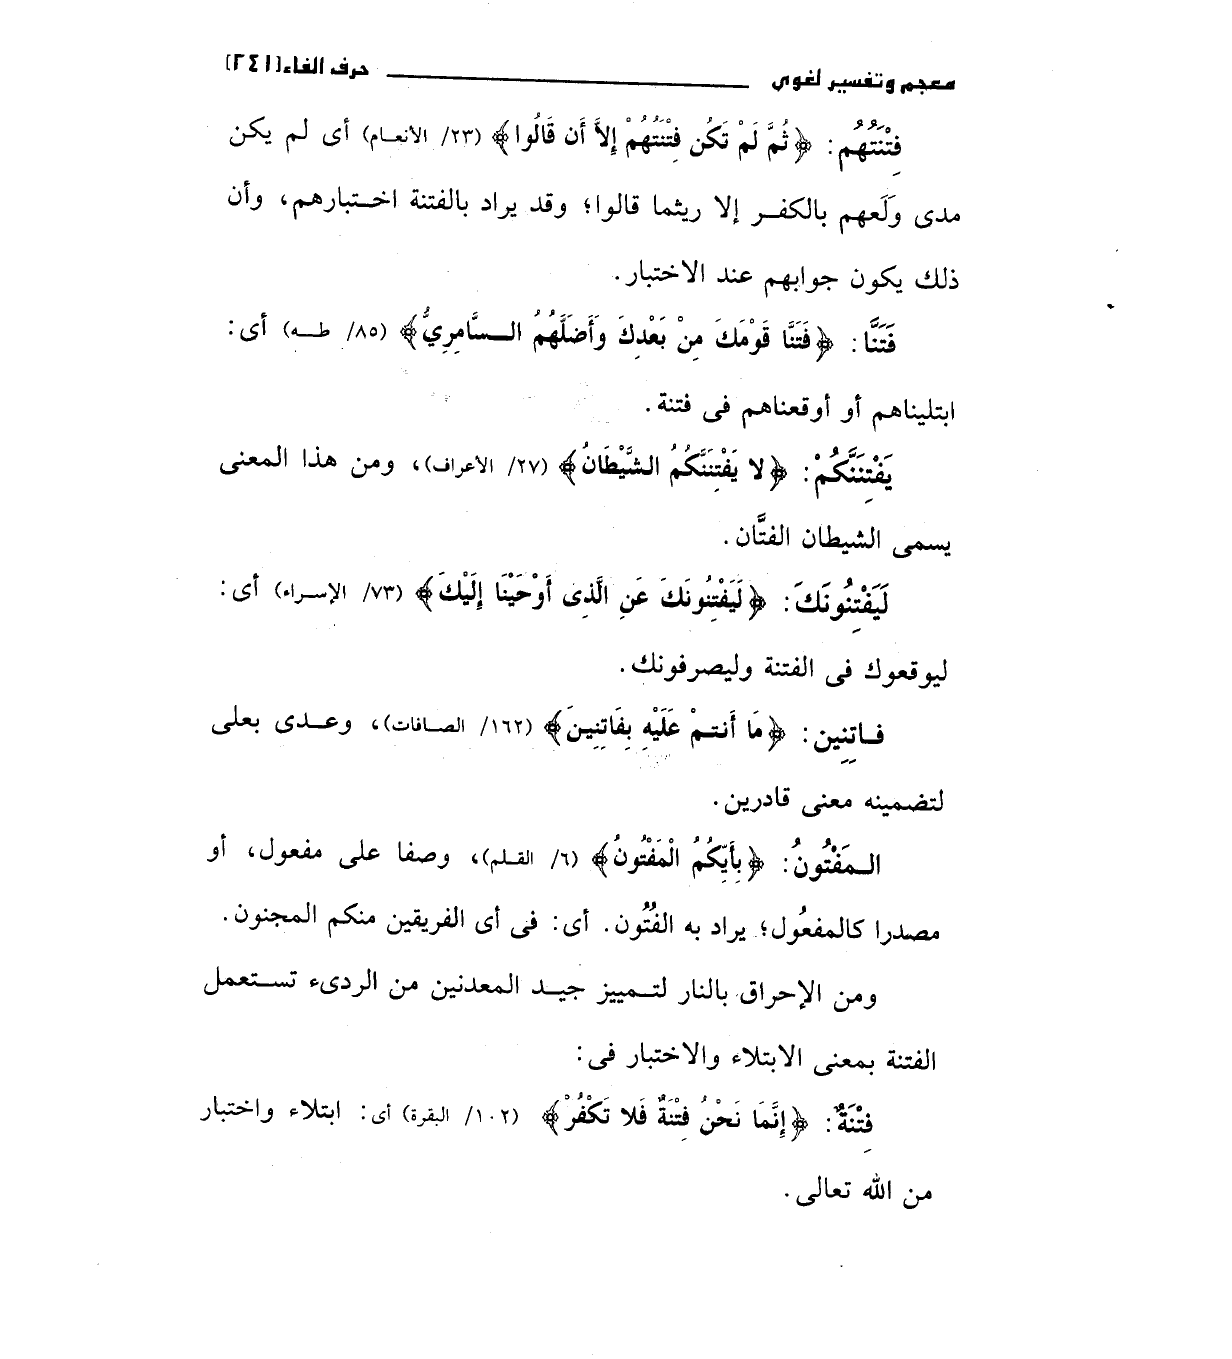 معجم وتفسير لغوي ــــــــــ حرف الفاء [٢٤١]
فِتْنَتُهُم: ﴿ثُمَّ لَمْ تَكُن فِتْنَتُهُمْ إِلاَّ أَن قَالُوا﴾ (٢٣/ الأنعام) أى لم يكن
مدى وَلَعهم بالكفر إلا ريثما قالوا؛ وقد يراد بالفتنة اختبارهم، وأن
ذلك يكون جوابهم عند الاختبار.
فَتَنَّا: ﴿فَتَنَّا قَوْمَكَ مِنْ بَعْدِكَ وَأَضَلَّهُمُ السَّامِرِيُّ﴾ (٨٥/ طه) أى:
ابتليناهم أو أوقعناهم فى فتنة.
يَفْتِنَنَّكُمْ: ﴿لا يَفْتِنَنَّكُمُ الشَّيْطَانُ﴾ (٢٧/ الأعراف)، ومن هذا المعنى
يسمى الشيطان الفتَّان.
لَيَفْتِنُونَكَ: ﴿لَيَفْتِنُونَكَ عَنِ الَّذِى أَوْحَيْنَا إِلَيْكَ﴾ (٧٣/ الإسراء) أى:
ليوقعوك فى الفتنة وليصرفونك.
فاتِنِين: ﴿مَا أَنتمْ عَلَيْهِ بِفَاتِنِينَ﴾ (١٦٢/ الصافات)، وعدى بعلى
لتضمينه معنى قادرين.
المَفْتُونُ: ﴿بِأَيِّكُمُ الْمَفْتُونُ﴾ (٦/ القلم)، وصفا على مفعول، أو
مصدرا كالمفعُول؛ يراد به الفُتُون. أى: فى أى الفريقين منكم المجنون.
ومن الإحراق بالنار لتمييز جيد المعدنين من الردىء تستعمل
الفتنة بمعنى الابتلاء والاختبار فى:
فِتْنَةٌ: ﴿إِنَّمَا نَحْنُ فِتْنَةٌ فَلا تَكْفُرْ﴾ (١٠٢/ البقرة) أى: ابتلاء واختبار
من الله تعالى.